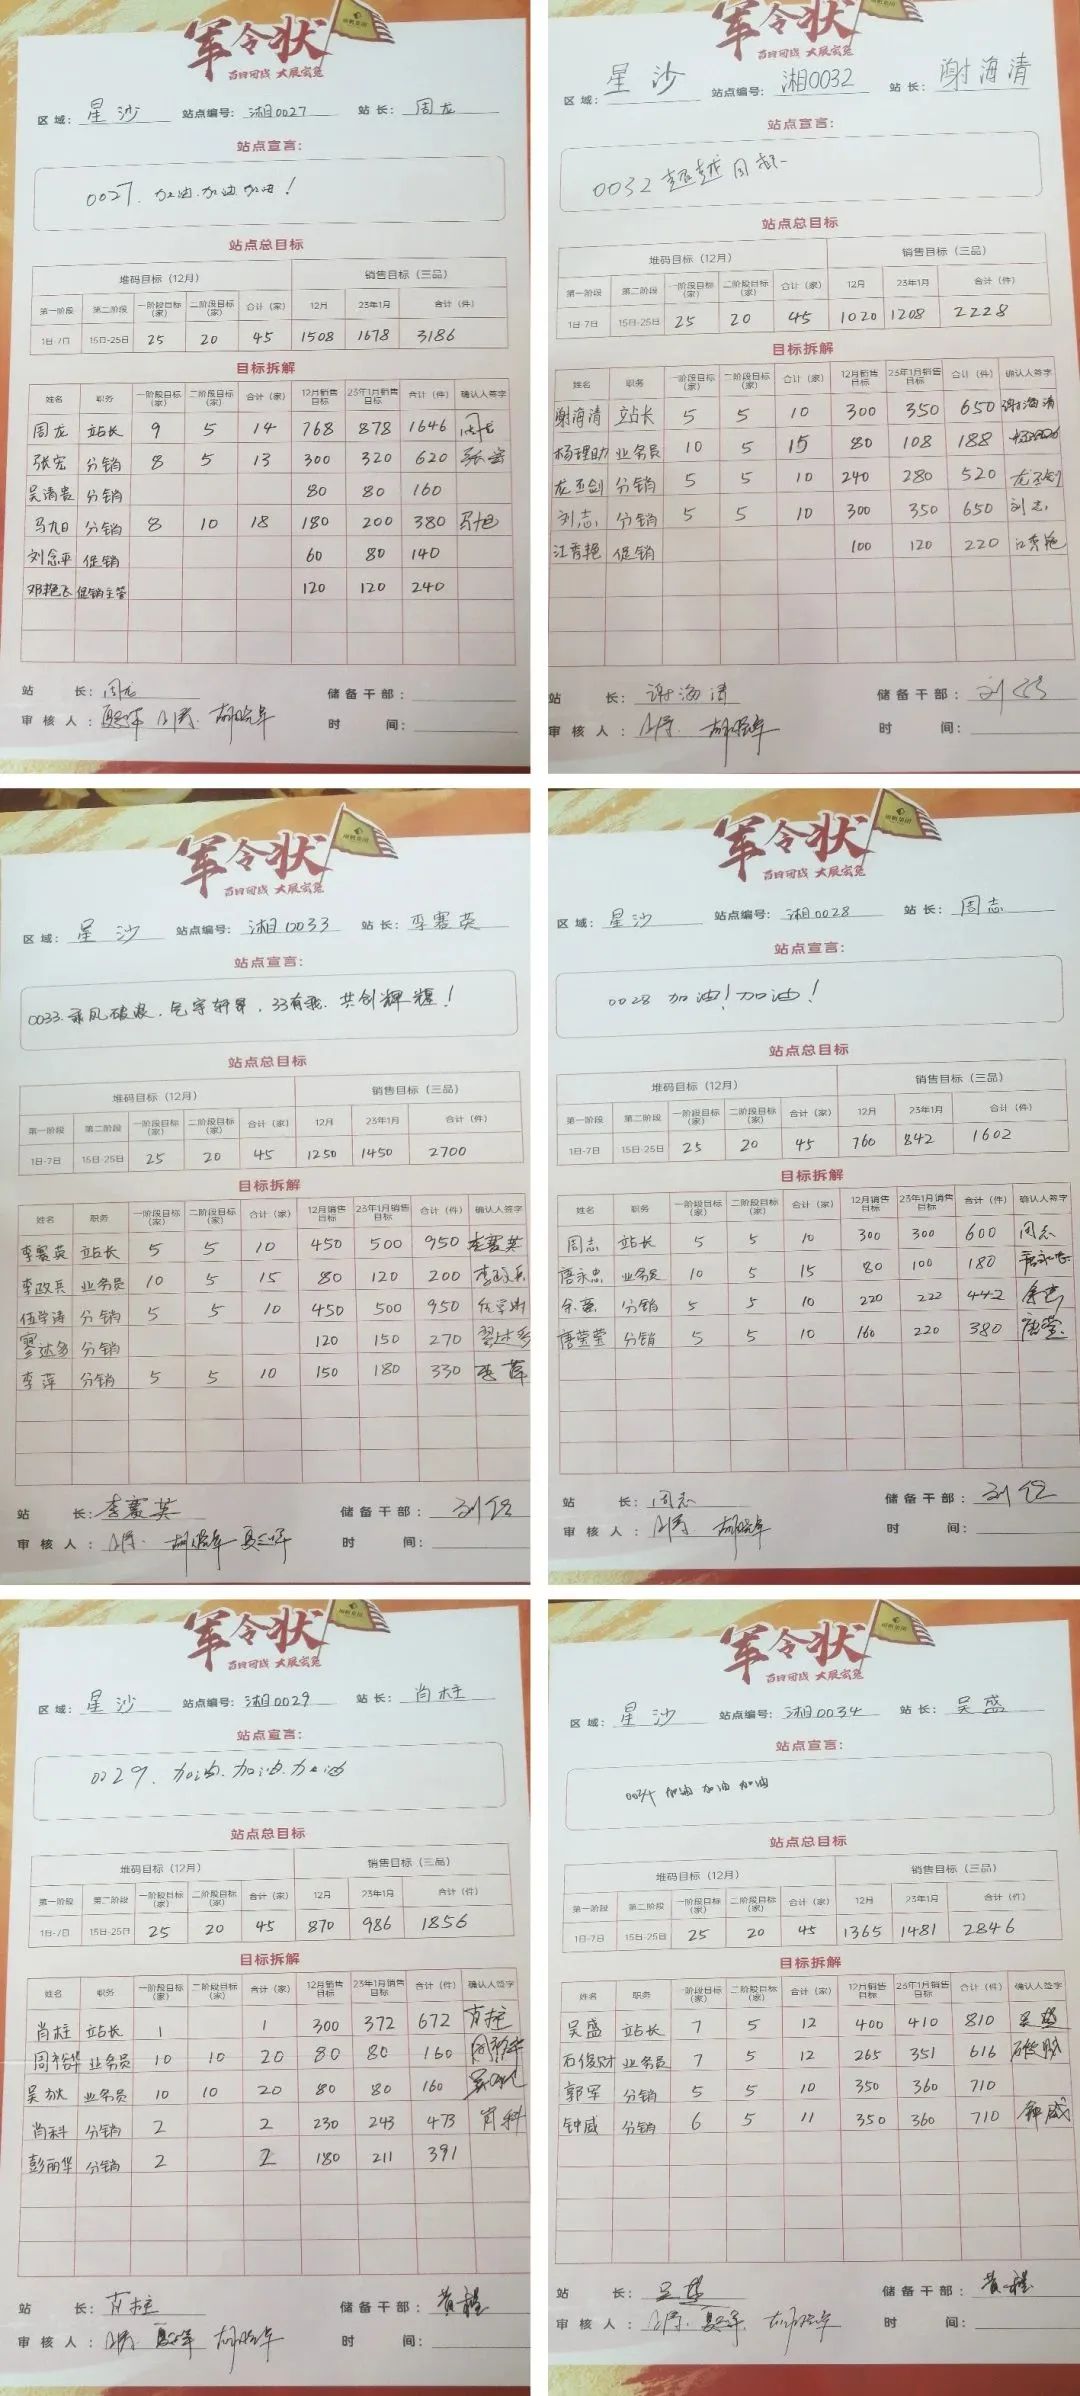 军令状
百日可战 大展宏兔
区域: 星沙 站点编号: 湘0027 站长: 周龙
站点宣言:
0027. 加油.加油.加油!
站点总目标
堆码目标(12月) 销售目标(三品)
第一阶段 第二阶段 一阶段目标(家) 二阶段目标(家) 合计(家) 12月 23年1月 合计(件)
1日-7日 15日-25日 25 20 45 1508 1678 3186
目标拆解
姓名 职务 一阶段目标(家) 二阶段目标(家) 合计(家) 12月销售目标 23年1月销售目标 合计(件) 确认人签字
周龙 站长 9 5 14 768 878 1646 周龙
张宏 分销 8 5 13 300 320 620 张宏
吴清贵 分销 80 80 160
马九日 分销 8 10 18 180 200 380
刘念平 促销 60 80 140
邓艳飞 促销主管 120 120 240
站长: 周龙 储备干部:
审核人: 时间:
军令状
百日可战 大展宏兔
区域: 星沙 站点编号: 湘0032 站长: 谢海清
站点宣言:
0032 超越
站点总目标
堆码目标(12月) 销售目标(三品)
第一阶段 第二阶段 一阶段目标(家) 二阶段目标(家) 合计(家) 12月 23年1月 合计(件)
1日-7日 15日-25日 25 20 45 1020 1208 2228
目标拆解
姓名 职务 一阶段目标(家) 二阶段目标(家) 合计(家) 12月销售目标 23年1月销售目标 合计(件) 确认人签字
谢海清 站长 5 5 10 300 350 650 谢海清
杨理助 业务员 10 5 15 80 108 188
龙丕剑 分销 5 5 10 240 280 520 龙丕剑
刘志 分销 5 5 10 300 350 650 刘志
江秀艳 促销 100 120 220 江秀艳
站长: 谢海清 储备干部:
审核人: 时间:
军令状
百日可战 大展宏兔
区域: 星沙 站点编号: 湘0033 站长: 李赛英
站点宣言:
0033.乘风破浪,气宇轩昂,33有我.共创辉煌!
站点总目标
堆码目标(12月) 销售目标(三品)
第一阶段 第二阶段 一阶段目标(家) 二阶段目标(家) 合计(家) 12月 23年1月 合计(件)
1日-7日 15日-25日 25 20 45 1250 1450 2700
目标拆解
姓名 职务 一阶段目标(家) 二阶段目标(家) 合计(家) 12月销售目标 23年1月销售目标 合计(件) 确认人签字
李赛英 站长 5 5 10 450 500 950 李赛英
李政兵 业务员 10 5 15 80 120 200 李政兵
伍学涛 分销 5 5 10 450 500 950
廖述多 分销 120 150 270
李萍 分销 5 5 10 150 180 330 李萍
站长: 李赛英 储备干部:
审核人: 时间:
军令状
百日可战 大展宏兔
区域: 星沙 站点编号: 湘0028 站长: 周志
站点宣言:
0028 加油!加油!
站点总目标
堆码目标(12月) 销售目标(三品)
第一阶段 第二阶段 一阶段目标(家) 二阶段目标(家) 合计(家) 12月 23年1月 合计(件)
1日-7日 15日-25日 25 20 45 760 842 1602
目标拆解
姓名 职务 一阶段目标(家) 二阶段目标(家) 合计(家) 12月销售目标 23年1月销售目标 合计(件) 确认人签字
周志 站长 5 5 10 300 300 600 周志
唐永忠 业务员 10 5 15 80 100 180 唐永忠
分销 5 5 10 220 222 442
唐莹莹 分销 5 5 10 160 220 380
站长: 周志 储备干部:
审核人: 时间:
军令状
百日可战 大展宏兔
区域: 星沙 站点编号: 湘0029 站长: 肖柱
站点宣言:
0029、加油.加油.加油
站点总目标
堆码目标(12月) 销售目标(三品)
第一阶段 第二阶段 一阶段目标(家) 二阶段目标(家) 合计(家) 12月 23年1月 合计(件)
1日-7日 15日-25日 25 20 45 870 986 1856
目标拆解
姓名 职务 一阶段目标(家) 二阶段目标(家) 合计(家) 12月销售目标 23年1月销售目标 合计(件) 确认人签字
肖柱 站长 1 1 300 372 672 肖柱
业务员 10 10 20 80 80 160
业务员 10 10 20 80 80 160
肖科 分销 2 2 230 243 473 肖科
彭丽华 分销 2 2 180 211 391
站长: 肖柱 储备干部: 黄程
审核人: 时间:
军令状
百日可战 大展宏兔
区域: 星沙 站点编号: 湘0034 站长: 吴盛
站点宣言:
0034 加油 加油 加油
站点总目标
堆码目标(12月) 销售目标(三品)
第一阶段 第二阶段 一阶段目标(家) 二阶段目标(家) 合计(家) 12月 23年1月 合计(件)
1日-7日 15日-25日 25 20 45 1365 1481 2846
目标拆解
姓名 职务 一阶段目标(家) 二阶段目标(家) 合计(家) 12月销售目标 23年1月销售目标 合计(件) 确认人签字
吴盛 站长 7 5 12 400 410 810 吴盛
石俊财 业务员 7 5 12 265 351 616
郭军 分销 5 5 10 350 360 710
钟威 分销 6 5 11 350 360 710 钟威
站长: 吴盛 储备干部: 黄程
审核人: 时间: